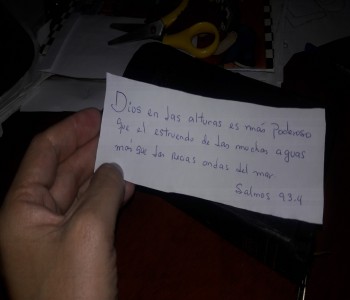 Dios en las alturas es más Poderoso
que el estruendo de las muchas aguas
más que las recias ondas del mar
Salmos 93.4